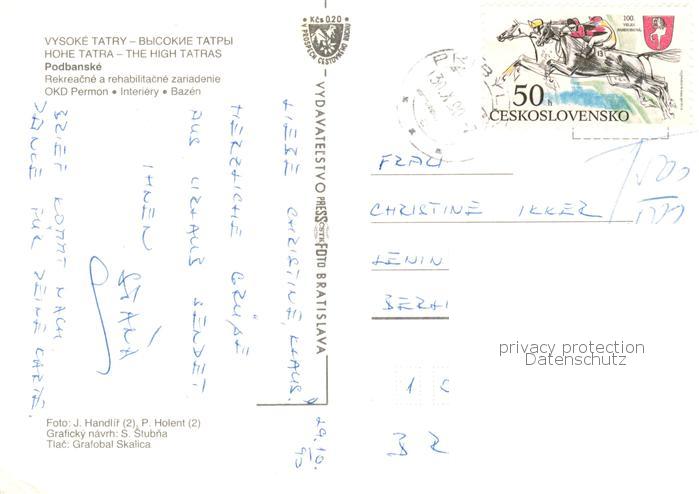 VYSOKÉ TATRY – ВЫСОКИЕ ТАТРЫ
HOHE TATRA – THE HIGH TATRAS
Podbanské
Rekreačné a rehabilitačné zariadenie
OKD Permon • Interiéry • Bazén
Kčs 0,20
VYDAVATEĽSTVO PRESSFOTO BRATISLAVA
ČSTK
100.
VELKÁ
PARDUBICKÁ
50 h
ČESKOSLOVENSKO
LIEBE CHRISTINE, KLAUS!
HERZLICHE GRÜßE
AUS URLAUB SENDET
IHNEN
STÁŇA
BRIEF KOMMT NACH.
DANKE FÜR DEINE KARTE.
29.10.
90
FRAU
CHRISTINE IKKER
LENIN
BERLI
1
privacy protection
Datenschutz
Foto: J. Handlíř (2), P. Holent (2)
Grafický návrh: S. Štubňa
Tlač: Grafobal Skalica